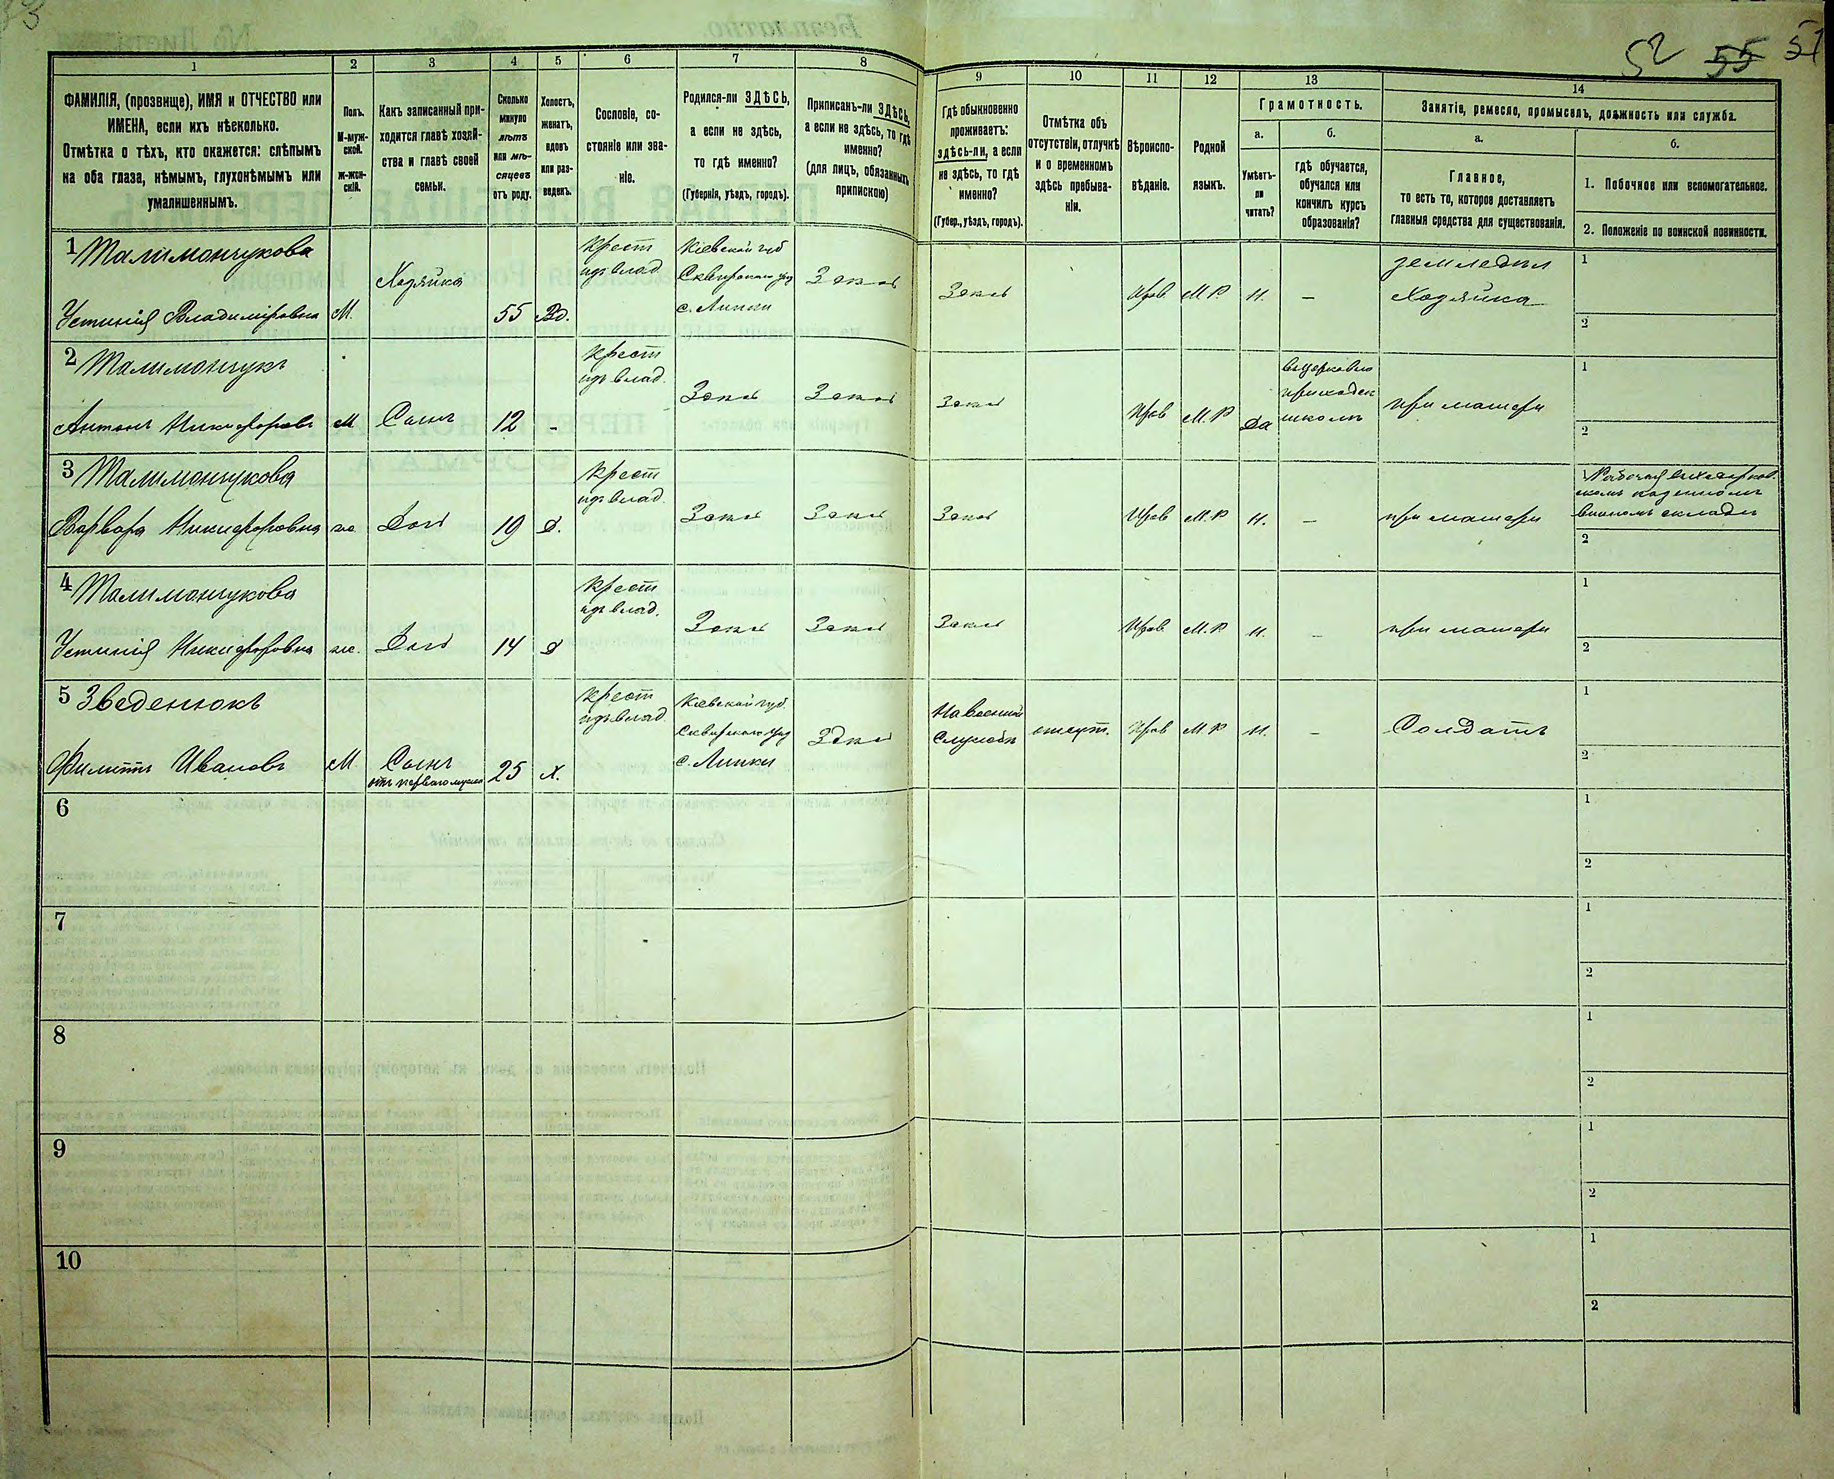 52 55 51
1
2
3
4
5
6
7
8
9
10
11
12
13
14
ФАМИЛІЯ, (прозвище), ИМЯ и ОТЧЕСТВО или
ИМЕНА, если ихъ нѣсколько.
Отмѣтка о тѣхъ, кто окажется: слѣпымъ
на оба глаза, нѣмымъ, глухонѣмымъ или
умалишеннымъ.
Полъ.
М-муж-
ской.
Ж-жен-
скій.
Какъ записанный при-
ходится главѣ хозяй-
ства и главѣ своей
семьи.
Сколько
минуло
лѣтъ
или мѣ-
сяцевъ
отъ роду.
Холостъ,
женатъ,
вдовъ
или раз-
веденъ.
Сословіе, со-
стояніе или зва-
ніе.
Родился-ли ЗДѢСЬ,
а если не здѣсь,
то гдѣ именно?
(Губернія, уѣздъ, городъ).
Приписанъ-ли ЗДѢСЬ,
а если не здѣсь, то гдѣ
именно?
(для лицъ, обязанныхъ
припискою)
Гдѣ обыкновенно
проживаетъ:
здѣсь-ли, а если
не здѣсь, то гдѣ
именно?
(Губер., уѣздъ, городъ).
Отмѣтка объ
отсутствіи, отлучкѣ
и о временномъ
здѣсь пребыва-
ніи.
Вѣроиспо-
вѣданіе.
Родной
языкъ.
Грамотность.
а.
Умѣетъ-
ли
читать?
б.
гдѣ обучается,
обучался или
кончилъ курсъ
образованія?
Занятіе, ремесло, промыселъ, должность или служба.
а.
Главное,
то есть то, которое доставляетъ
главныя средства для существованія.
б.
1. Побочное или вспомогательное.
2. Положеніе по воинской повинности.
1 Талимончукова
Устинія Владиміровна
М.
Хозяйка
55
Вд.
крест
изъ влад.
Кіевской губ
Сквирского уез
с. Липки
Здесь
Здесь
Прав
М Р
Н.
—
земледел
Хозяйка
1
2
2 Талимончукъ
Антонъ Никифоровъ
М
Сынъ
12
-
крест
изъ влад.
Здесь
Здесь
Здесь
Прав
М. Р
Да
въ церковно
приходск
школѣ
при матери
1
2
3 Талимончукова
Варвара Никифоровна
ж.
Доч
19
Д.
крест
изъ влад.
Здесь
Здесь
Здесь
Прав
М. Р
Н.
—
при матери
1
казенном
винномъ складе
2
4 Талимончукова
Устинія Никифоровна
ж.
Доч
14
д
крест
изъ влад.
Здесь
Здесь
Здесь
Прав
М. Р
Н.
—
при матери
1
2
5 Зведенюкъ
Филиппъ Ивановъ
М
Сынъ
отъ перваго мужа
25
х.
крест
изъ влад
Кіевской губ.
Сквирского уез
с. Липки
Здесь
На военной
Службѣ
Прав
М. Р
Н.
—
Солдатъ
1
2
6
1
2
7
1
2
8
1
2
9
1
2
10
1
2